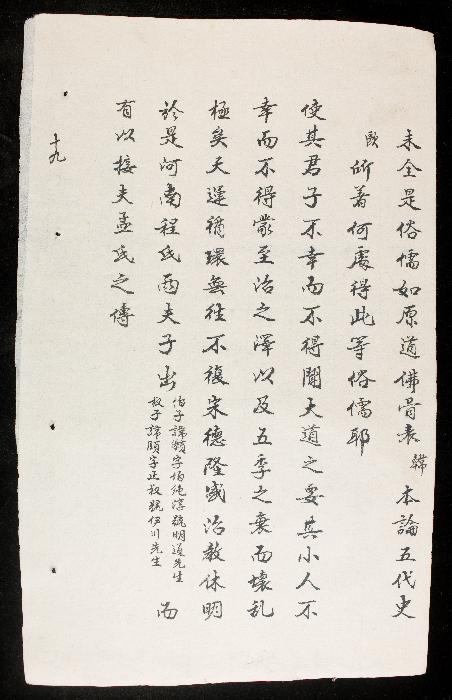 未全是俗儒如原道佛骨表韓本論五代史
歐所著何處得此等俗儒耶
使其君子不幸而不得聞大道之要其小人不
幸而不得蒙至治之澤以及五季之衰而壞乱
極矣天運循環無往不復宋德隆盛治教休明
於是河南程氏两夫子出
伯子諱顥字伯純淳號明道先生
叔子諱頤字正叔號伊川先生
而
有以接夫孟氏之傳
十九